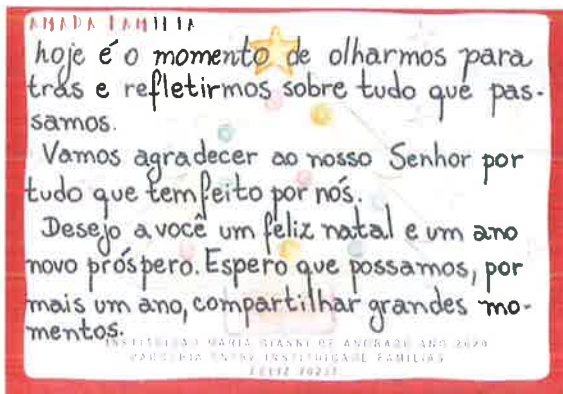 AMADA FAMILIA
hoje é o momento de olharmos para
trás e refletirmos sobre tudo que pas-
samos.
Vamos agradecer ao nosso Senhor por
tudo que tem feito por nós.
Desejo a você um feliz natal e um ano
novo próspero. Espero que possamos, por
mais um ano, compartilhar grandes mo-
mentos.
INSTITUIÇÃO MARIA GIANNI DE ANDRADE ANO 2020
PARCERIA ENTRE INSTITUIÇÃO E FAMILIAS
FELIZ 2021!